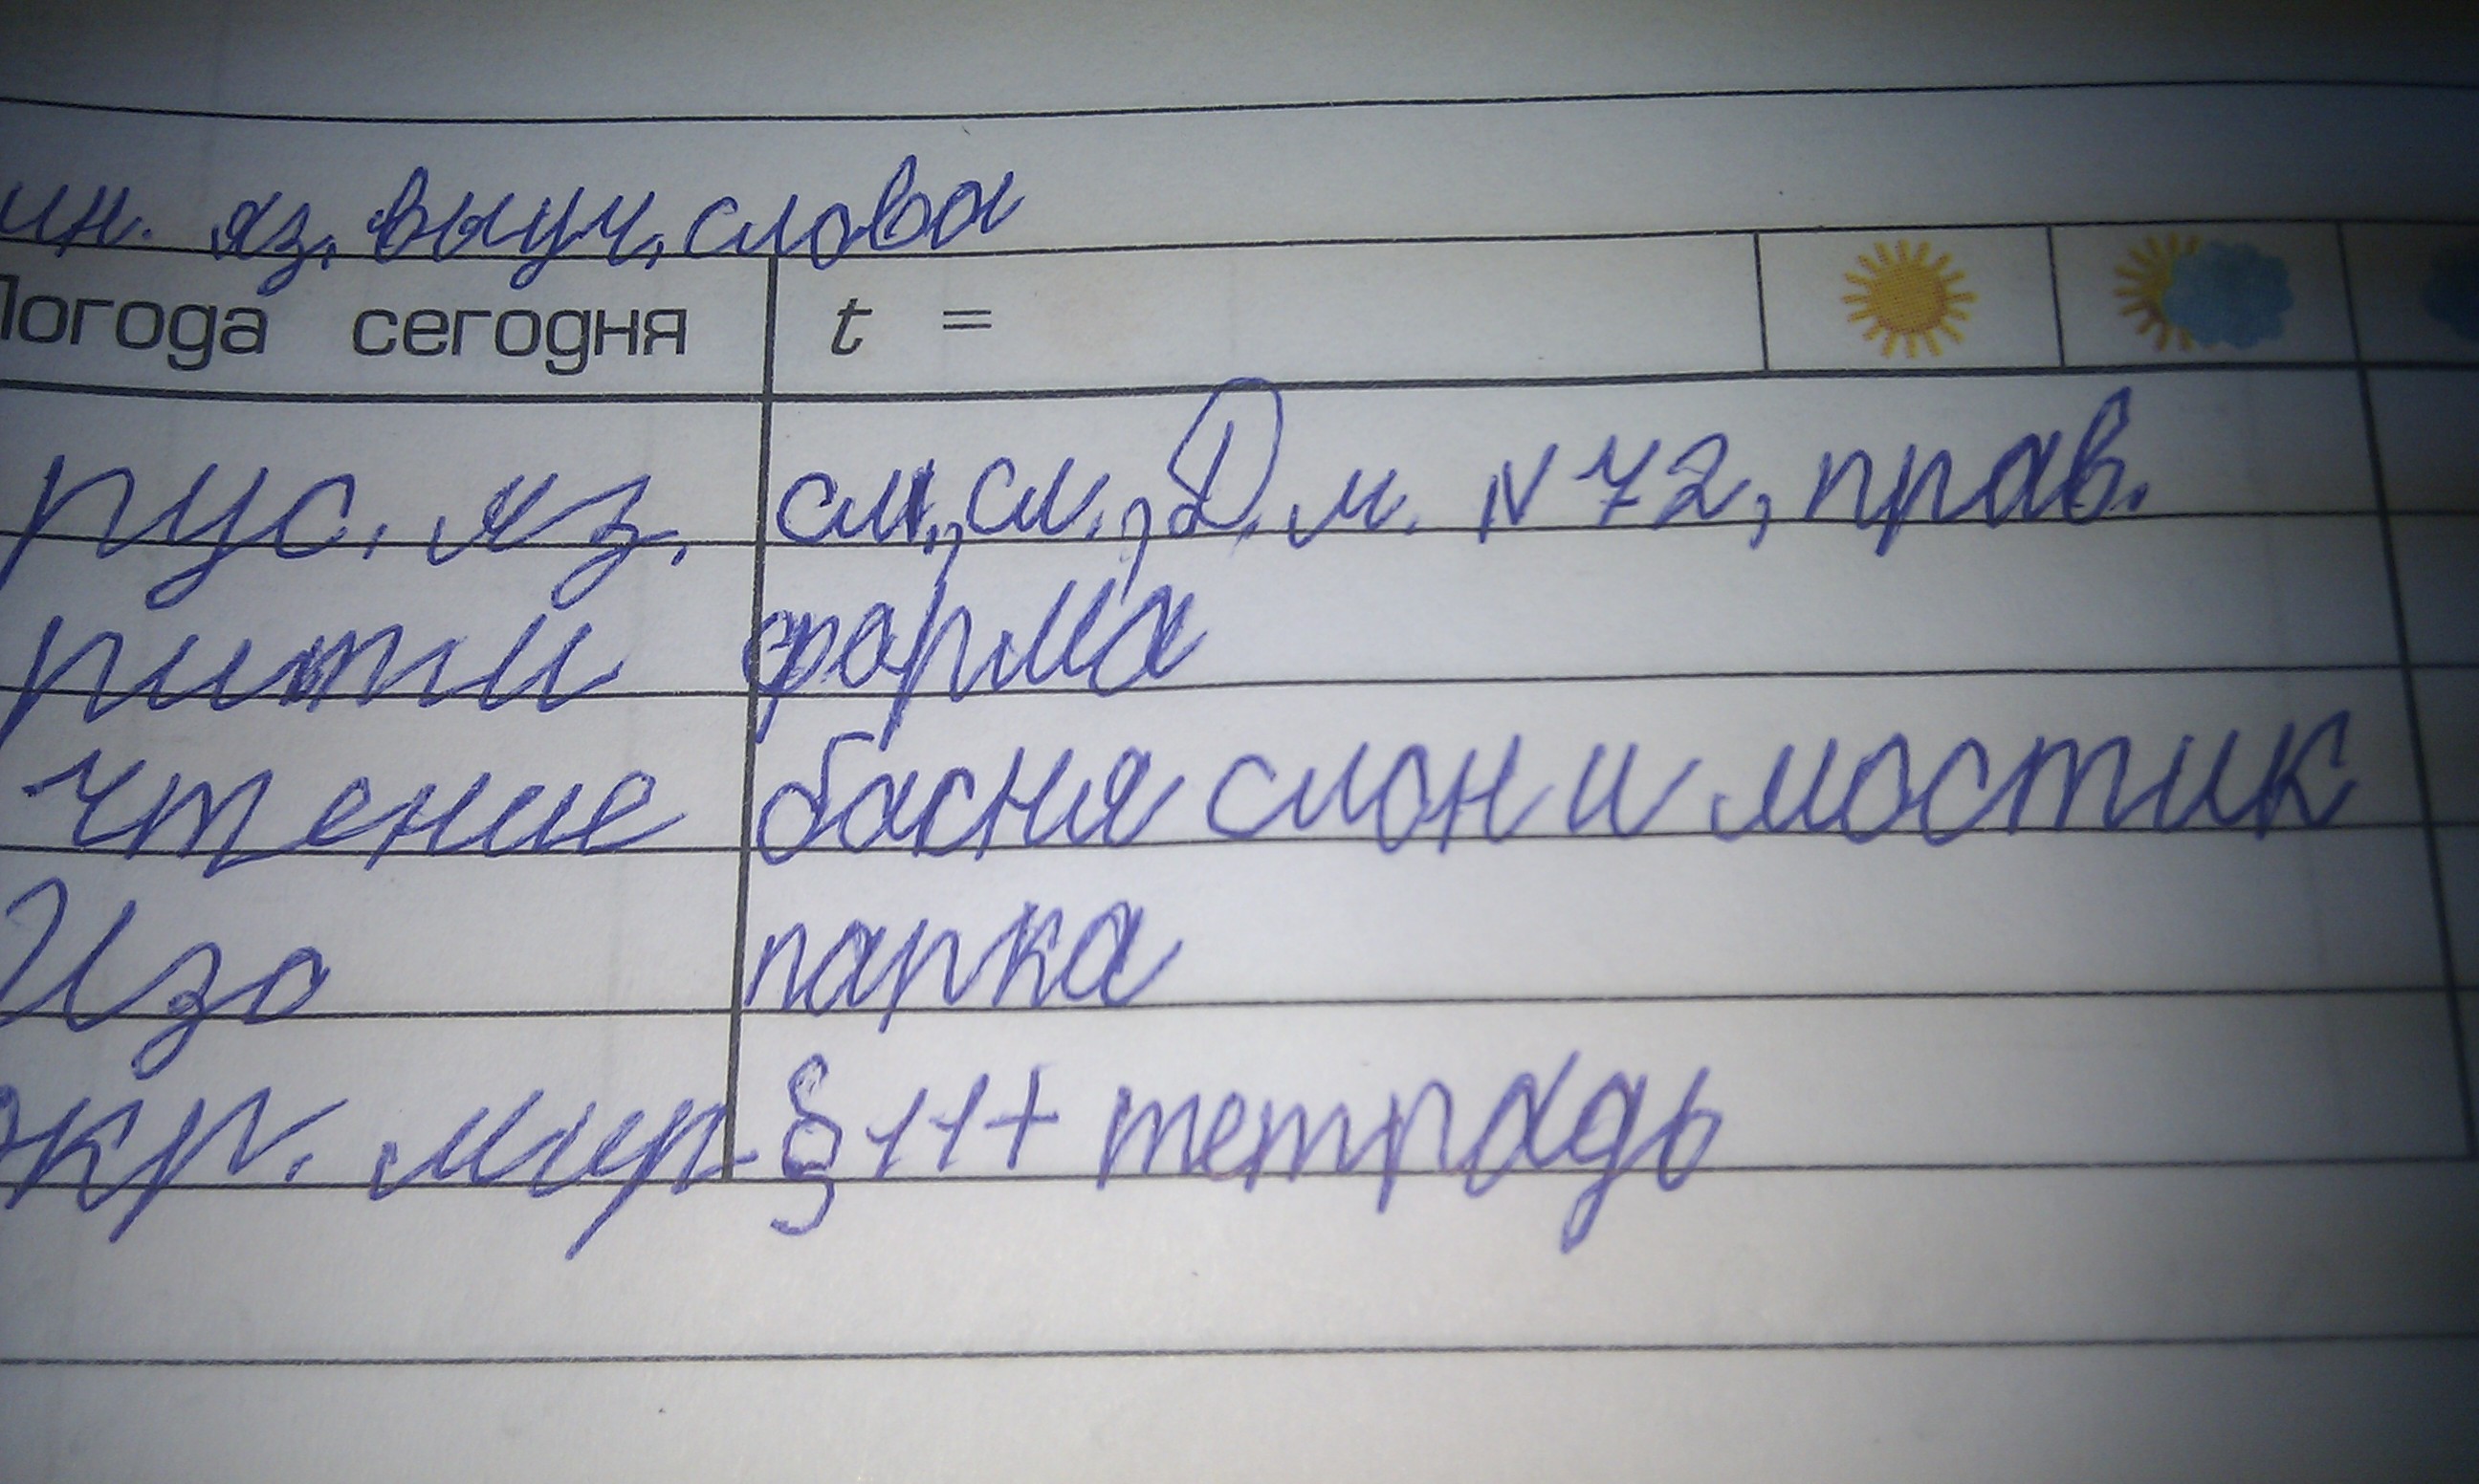 ин. яз, выуч, слова
Погода сегодня t =
рус. яз. сл., сл., Д. м. N 72, прав.
ритм форма
чтение басня слон и мостик
Изо папка
окр. мир. § 11 + тетрадь